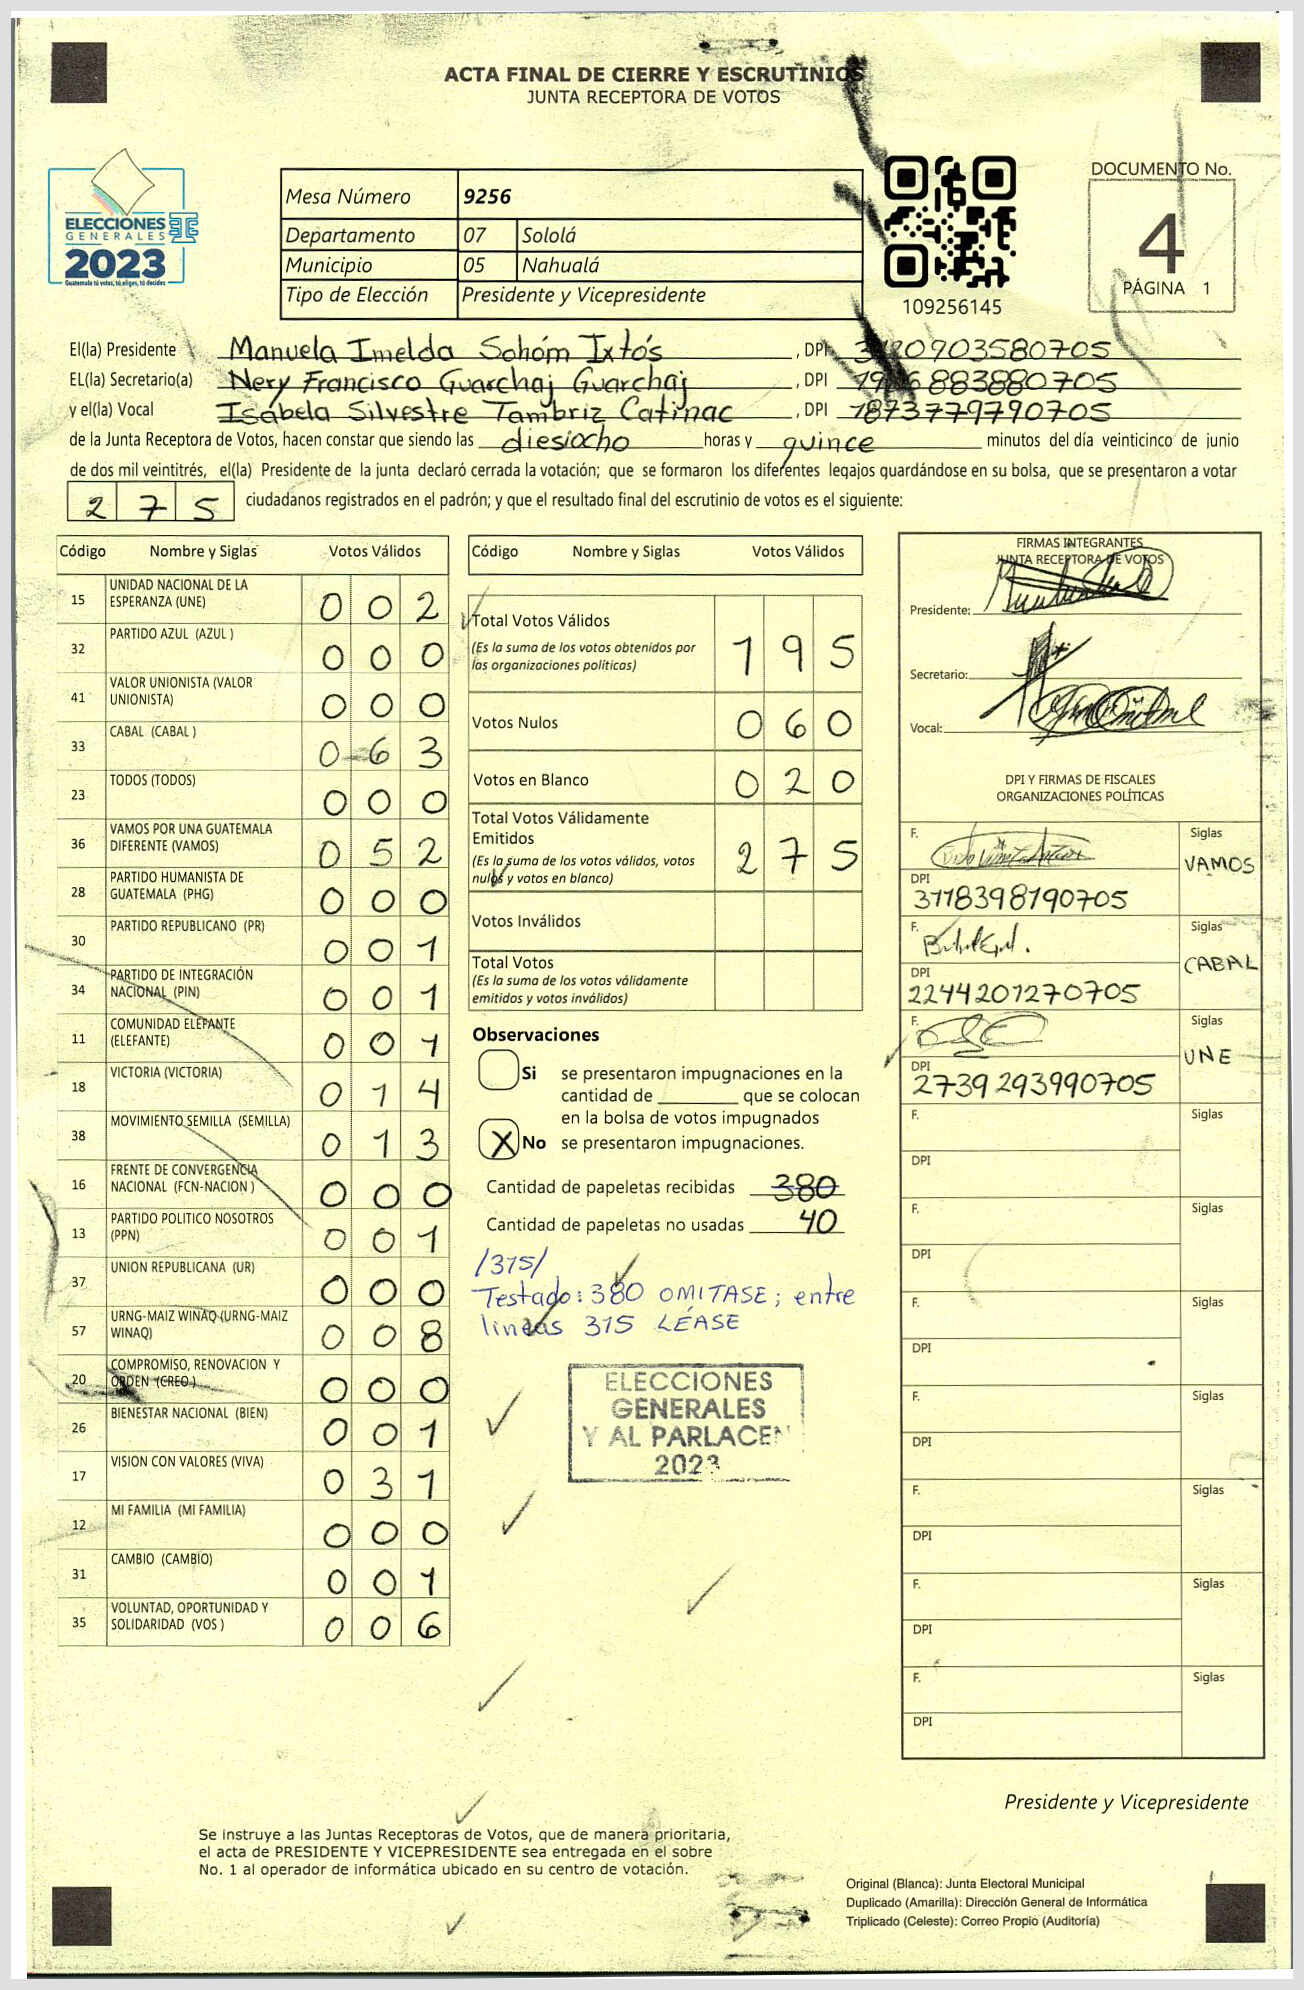 ACTA FINAL DE CIERRE Y ESCRUTINIOS
JUNTA RECEPTORA DE VOTOS
ELECCIONES
GENERALES
2023
Guatemala tú votas, tú eliges, tú decides
Mesa Número 9256
Departamento 07 Sololá
Municipio 05 Nahualá
Tipo de Elección Presidente y Vicepresidente
109256145
DOCUMENTO No.
4
PÁGINA 1
El(la) Presidente Manuela Imelda Sohóm Ixtós, DPI
EL(la) Secretario(a) Nery Francisco Guarchaj Guarchaj, DPI
y el(la) Vocal Isabela Silvestre Tambriz Catinac, DPI 1873779790705
de la Junta Receptora de Votos, hacen constar que siendo las diesiocho horas y quince minutos del día veinticinco de junio
de dos mil veintitrés, el(la) Presidente de la junta declaró cerrada la votación; que se formaron los diferentes legajos guardándose en su bolsa, que se presentaron a votar
2 7 5 ciudadanos registrados en el padrón; y que el resultado final del escrutinio de votos es el siguiente:
Código Nombre y Siglas Votos Válidos
15 UNIDAD NACIONAL DE LA ESPERANZA (UNE) 0 0 2
32 PARTIDO AZUL (AZUL ) 0 0 0
41 VALOR UNIONISTA (VALOR UNIONISTA) 0 0 0
33 CABAL (CABAL ) 0 6 3
23 TODOS (TODOS) 0 0 0
36 VAMOS POR UNA GUATEMALA DIFERENTE (VAMOS) 0 5 2
28 PARTIDO HUMANISTA DE GUATEMALA (PHG) 0 0 0
30 PARTIDO REPUBLICANO (PR) 0 0 1
34 PARTIDO DE INTEGRACIÓN NACIONAL (PIN) 0 0 1
11 COMUNIDAD ELEFANTE (ELEFANTE) 0 0 1
18 VICTORIA (VICTORIA) 0 1 4
38 MOVIMIENTO SEMILLA (SEMILLA) 0 1 3
16 FRENTE DE CONVERGENCIA NACIONAL (FCN-NACION ) 0 0 0
13 PARTIDO POLITICO NOSOTROS (PPN) 0 0 1
37 UNION REPUBLICANA (UR) 0 0 0
57 URNG-MAIZ WINAQ (URNG-MAIZ WINAQ) 0 0 8
20 COMPROMISO, RENOVACION Y ORDEN (CREO ) 0 0 0
26 BIENESTAR NACIONAL (BIEN) 0 0 1
17 VISION CON VALORES (VIVA) 0 3 1
12 MI FAMILIA (MI FAMILIA) 0 0 0
31 CAMBIO (CAMBIO) 0 0 1
35 VOLUNTAD, OPORTUNIDAD Y SOLIDARIDAD (VOS ) 0 0 6
Código Nombre y Siglas Votos Válidos
Total Votos Válidos 1 9 5
(Es la suma de los votos obtenidos por
las organizaciones políticas)
Votos Nulos 0 6 0
Votos en Blanco 0 2 0
Total Votos Válidamente
Emitidos 2 7 5
(Es la suma de los votos válidos, votos
nulos y votos en blanco)
Votos Inválidos
Total Votos
(Es la suma de los votos válidamente
emitidos y votos inválidos)
Observaciones
Si se presentaron impugnaciones en la
cantidad de ________ que se colocan
en la bolsa de votos impugnados
X No se presentaron impugnaciones.
Cantidad de papeletas recibidas 380
Cantidad de papeletas no usadas 40
/315/
Testado: 380 OMITASE; entre
lineas 315 LÉASE
ELECCIONES
GENERALES
Y AL PARLACEN
2023
FIRMAS INTEGRANTES
JUNTA RECEPTORA DE VOTOS
Presidente:
Secretario:
Vocal:
DPI Y FIRMAS DE FISCALES
ORGANIZACIONES POLÍTICAS
F. Siglas VAMOS
DPI 3118398190705
F. Siglas CABAL
DPI 2244201270705
F. Siglas UNE
DPI 2739293990705
F. Siglas
DPI
F. Siglas
DPI
F. Siglas
DPI
F. Siglas
DPI
F. Siglas
DPI
F. Siglas
DPI
F. Siglas
DPI
Presidente y Vicepresidente
Se instruye a las Juntas Receptoras de Votos, que de manera prioritaria,
el acta de PRESIDENTE Y VICEPRESIDENTE sea entregada en el sobre
No. 1 al operador de informática ubicado en su centro de votación.
Original (Blanca): Junta Electoral Municipal
Duplicado (Amarilla): Dirección General de Informática
Triplicado (Celeste): Correo Propio (Auditoría)